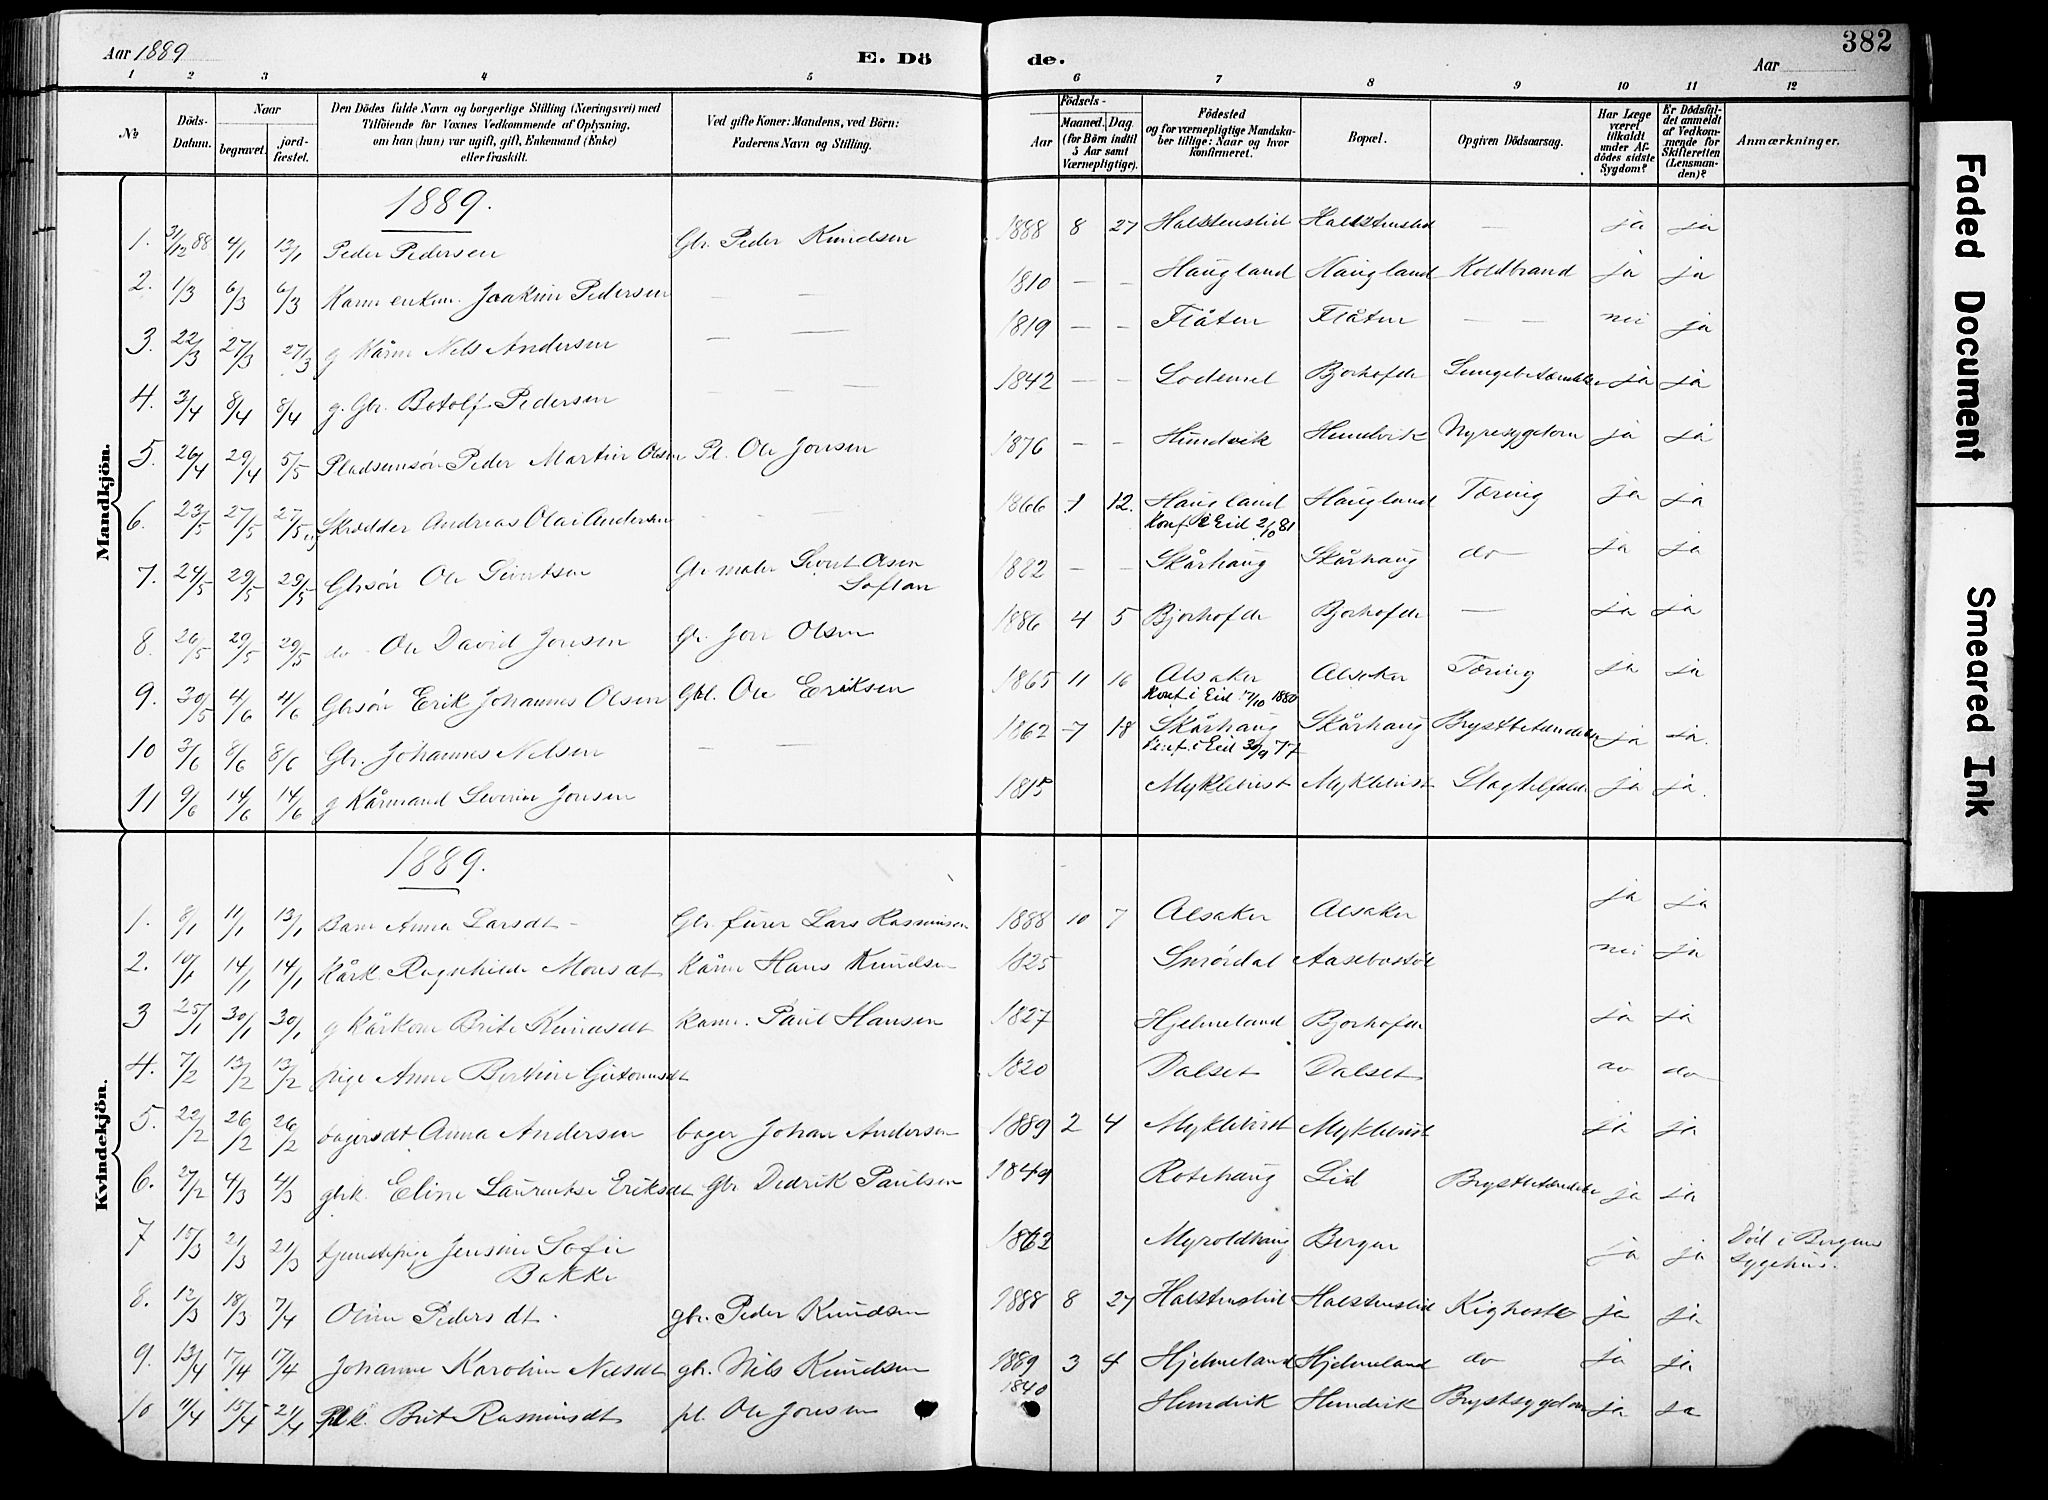 Aar 1889
E. Dö
de.
Aar
382
1 2 3 4 5 6 7 8 9 10 11 12
№
Döds-
Datum.
Naar
begravet.
jord-
fæstet.
Den Dödes fulde Navn og borgerlige Stilling (Næringsvei) med
Tilföiende for Voxnes Vedkommende af Oplysning,
om han (hun) var ugift, gift, Enkemand (Enke)
eller fraskilt.
Ved gifte Koner: Mandens, ved Börn:
Faderens Navn og Stilling.
Födsels-
Aar
Maaned. Dag
(for Börn indtil
5 Aar samt
Værnepligtige).
Födested
og for værnepligtige Mandska-
ber tillige: Naar og hvor
konfirmeret.
Bopæl.
Opgiven Dödsaarsag.
Har Læge
været
tilkaldt
under Af-
dödes sidste
Sygdom?
Er Dödsfal-
det anmeldt
af Vedkom-
mende for
Skifteretten
(Lensman-
den)?
Anmærkninger.
Mandkjön.
1889.
1. 31/12 88 4/1 13/1 Peder Pedersen Gbr. Peder Knudsen 1888 8 27 Halstenslid Halstenslid — ja ja
2. 1/3 6/3 6/3 Kaarm enkem. Joakim Pedersen — — 1810 — — Haugland Haugland Koldbrand ja ja
3. 22/3 27/3 27/3 g Kårm Nels Andersen — — 1819 — — Flåten Flåten — — nei ja
4. 3/4 8/4 8/4 g. Gbr. Botolf Pedersen — — 1842 — — Bjorhofde Lungebetændelse ja ja
5. 26/4 29/4 5/5 Pladsemsön Peder Martin Olsen Pl. Ole Jonsen 1876 — — Hundvik Hundvik Nyresygdom ja ja
6. 23/5 27/5 27/5 Skrædder Andreas Olai Andersen — — 1866 1 12. Haugland Haugland Tæring ja ja
Konf. i Eid 2/10 81
7. 24/5 29/5 29/5 Gbrsön Ole Sivertsen Gbr maler Sivert Olsen 1882 — — Skårhaug Skårhaug do ja ja
Loftan
8. 26/5 29/5 29/5 do Ole David Jonsen Gbr. Jon Olsen 1886 4 5 Bjorhofde Bjorhofde — ja ja
9. 30/5 4/6 4/6 Gbrsön Erik Johannes Olsen Gbr. Ole Eriksen 1865 11 16 Alsaker Alsaker Tæring ja ja
Konf. i Eid 17/10 1880
10 3/6 8/6 8/6 Gbr. Johannes Nilsen — — 1862 7 18 Skårhaug Skårhaug Brystbetændelse ja ja.
Konf. i Eid 30/9 77
11 9/6 14/6 14/6 g Kårmand Severin Jonsen 1815 Myklebust Myklebust Slagtilfælde ja ja.
Kvindekjön.
1889.
1. 8/1 11/1 13/1 Barn Anna Larsdt — Gbr furer Lars Rasmussen 1888 10 7 Alsaker Alsaker ja ja
2. 10/1 14/1 14/1 Kårk. Ragnhilde Monsdt Kårm Hans Knudsen 1825 Smördal Aasebostöl nei ja
3 25/1 30/1 30/1 g Kårkone Brite Knudsdt Kårm. Paul Hansen 1827 Hjelmeland Bjorhofde ja ja
4. 7/2 13/2 13/2 pige Anne Bertine Guttormsdt 1820 Dalset Dalset do do
5. 22/2 26/2 26/2 bagersdt Anna Andersen bager Johan Andersen 1889 2 4 Myklebust Myklebust ja ja
6. 27/2 4/3 4/3 gbrk. Eline Laurentse Eriksdt Gbr Didrik Paulsen 1849 Rotehaug Lid Brystbetændelse ja ja
7 15/3 21/3 21/3 tjenestepige Jensine Sofie 1862 Myroldhaug Bergen ja ja Död i Bergens
Bakke Sygehus.
8. 12/3 18/3 7/4 Oline Pedersdt. gbr. Peder Knudsen 1888 8 27 Halstenslid Halstenslid Kighoste ja ja
9. 13/4 17/4 17/4 Johanne Karoline Nilsdt gbr. Nils Knudsen 1889 3 4 Hjelmeland Hjelmeland do ja ja
10 11/4 15/4 21/4 plk. Brit Rasmusdt pl. Ole Jonsen 1840 Hundvik Hundvik Brystsygdom ja ja
Faded Document
Smeared Ink